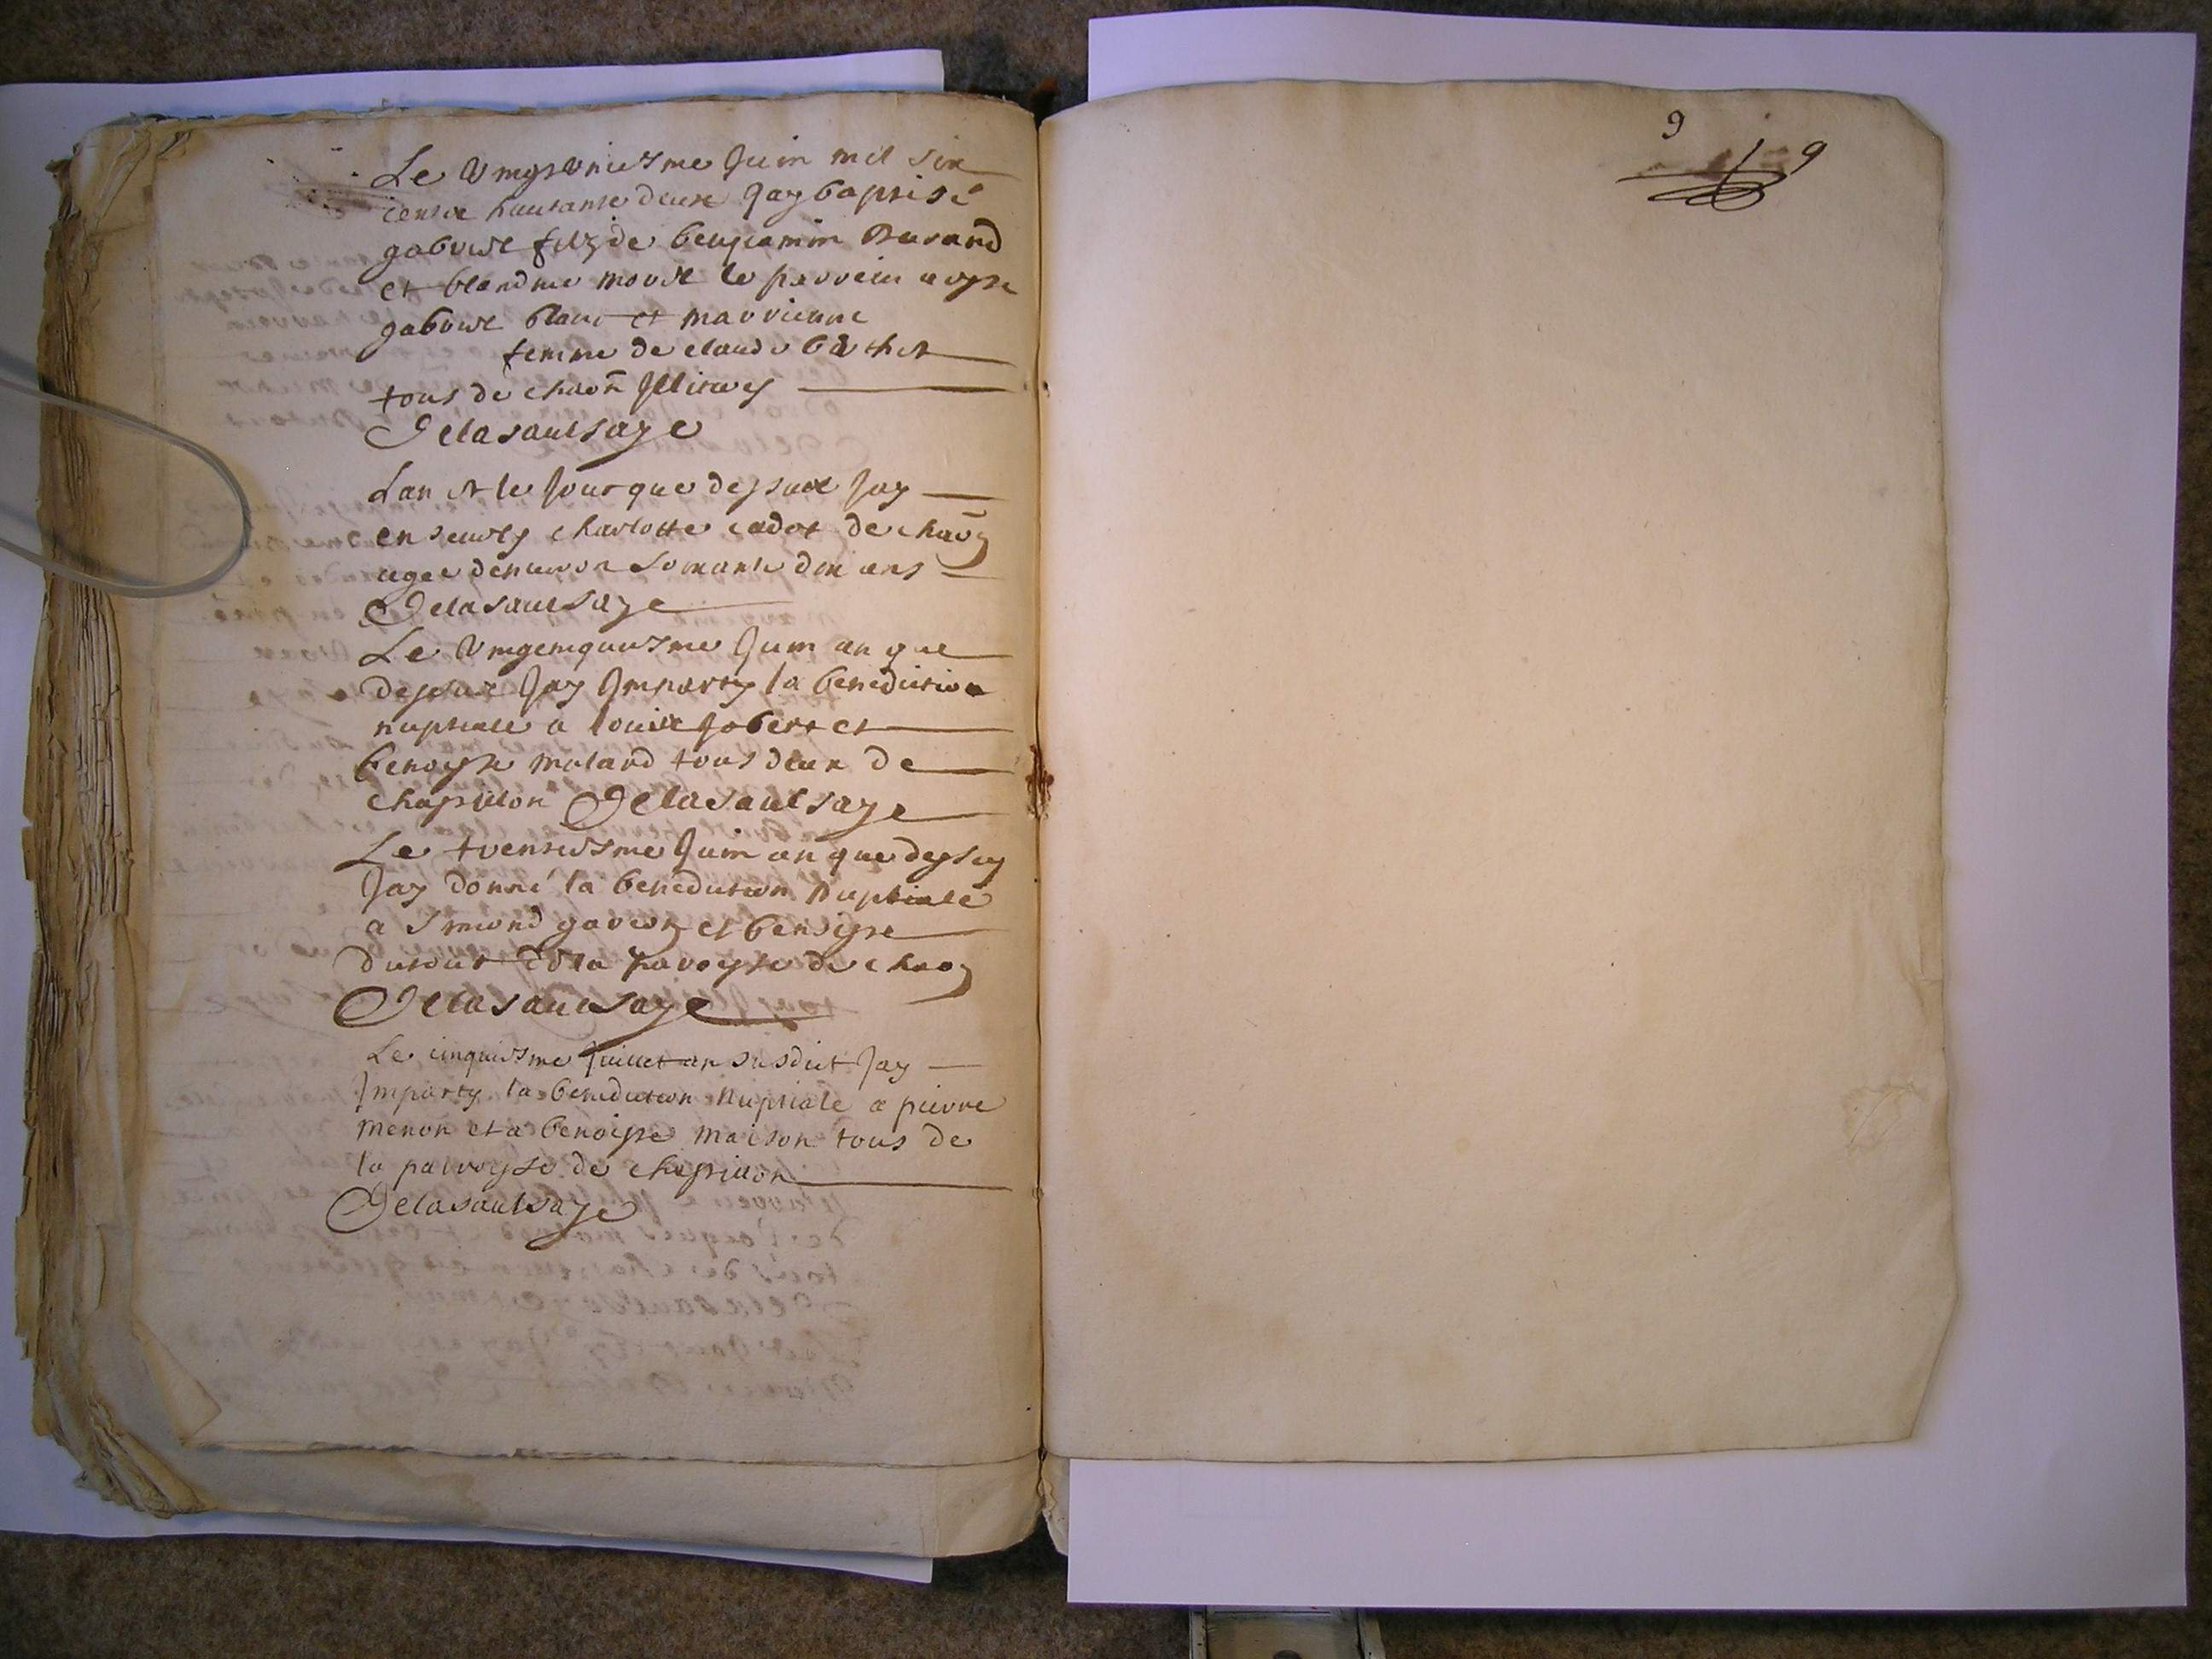 Le vingt uniesme Juin mil six
centz huictante deux Jay baptisé
gabriel filz de benjamin Durand
et blandine morel le parrein a esté
gabriel blanc et marrienne
femme de claude berthet
tous de chaon Illiterez
Delasaulsaye
Lan et le Jour que dessus Jay
ensevely charlotte cadot de chaon
agee denviron soixante dix ans
Delasaulsaye
Le vingtcinquiesme Juin an que
dessus Jay Imparty la benediction
nuptiale a louis Jobert et
benoiste molard tous deux de
chastillon Delasaulsaye
Le trentiesme Juin an que dessus
Jay donné la benediction nuptiale
a Simond gavion et benoiste
dutour de la parroysse de chaon
Delasaulsaye
Le cinquiesme Juillet an susdict Jay
Imparty la benediction nuptiale a pierre
menon et a benoiste maison tous de
la parroysse de chastillon
Delasaulsaye
9
9